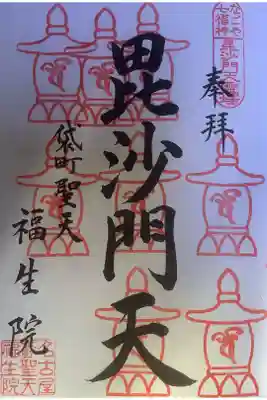 なごや
七福神
毘沙門天
奉拝
毘沙門天
袋町聖天
福生院
名古屋
袋聖天
福生院